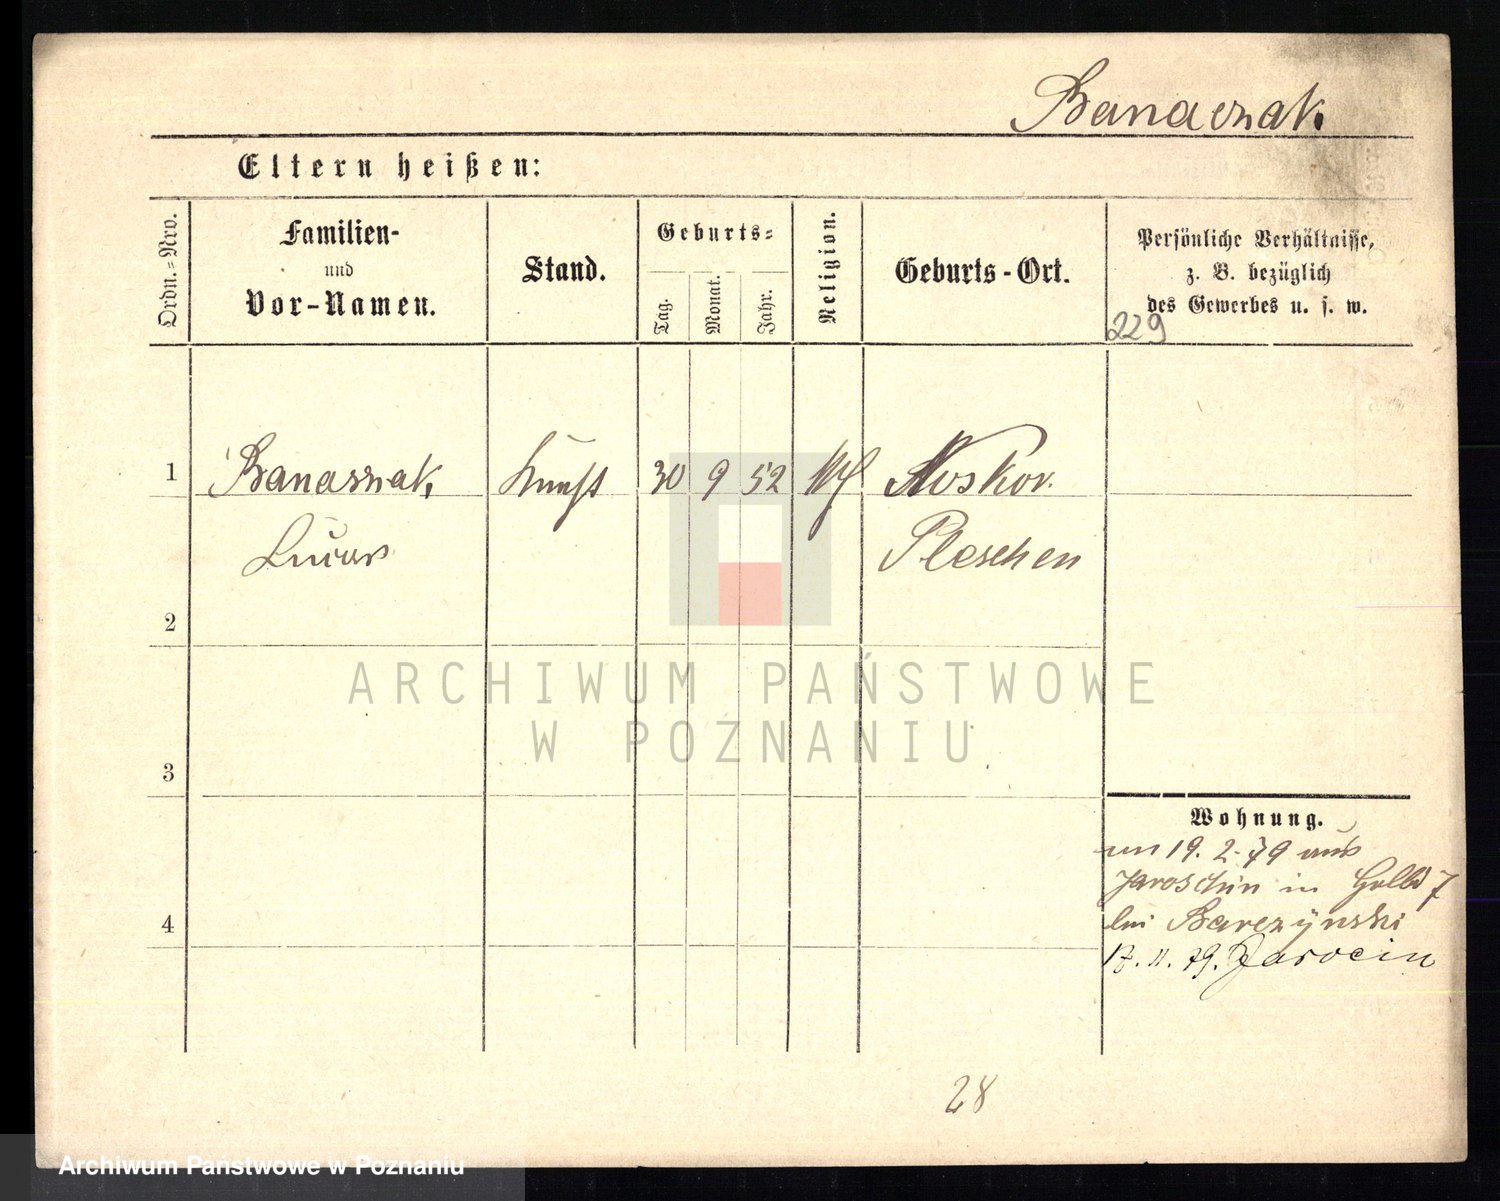 Banaczak.
Eltern heißen:
Ordn.=Nro.
Familien-
und
Vor-Namen.
Stand.
Geburts=
Tag.
Monat.
Jahr.
Religion.
Geburts-Ort.
Persönliche Verhältnisse,
z. B. bezüglich
des Gewerbes u. s. w.
229
1
Banaszak, 30 9 52 Noskov.
Pleschen
2
3
4
Wohnung.
19. 2. 79 aus
Jaroschin in
bei Barczynski
17. 11. 79. Jarocin
28
ARCHIWUM PAŃSTWOWE
W POZNANIU
Archiwum Państwowe w Poznaniu